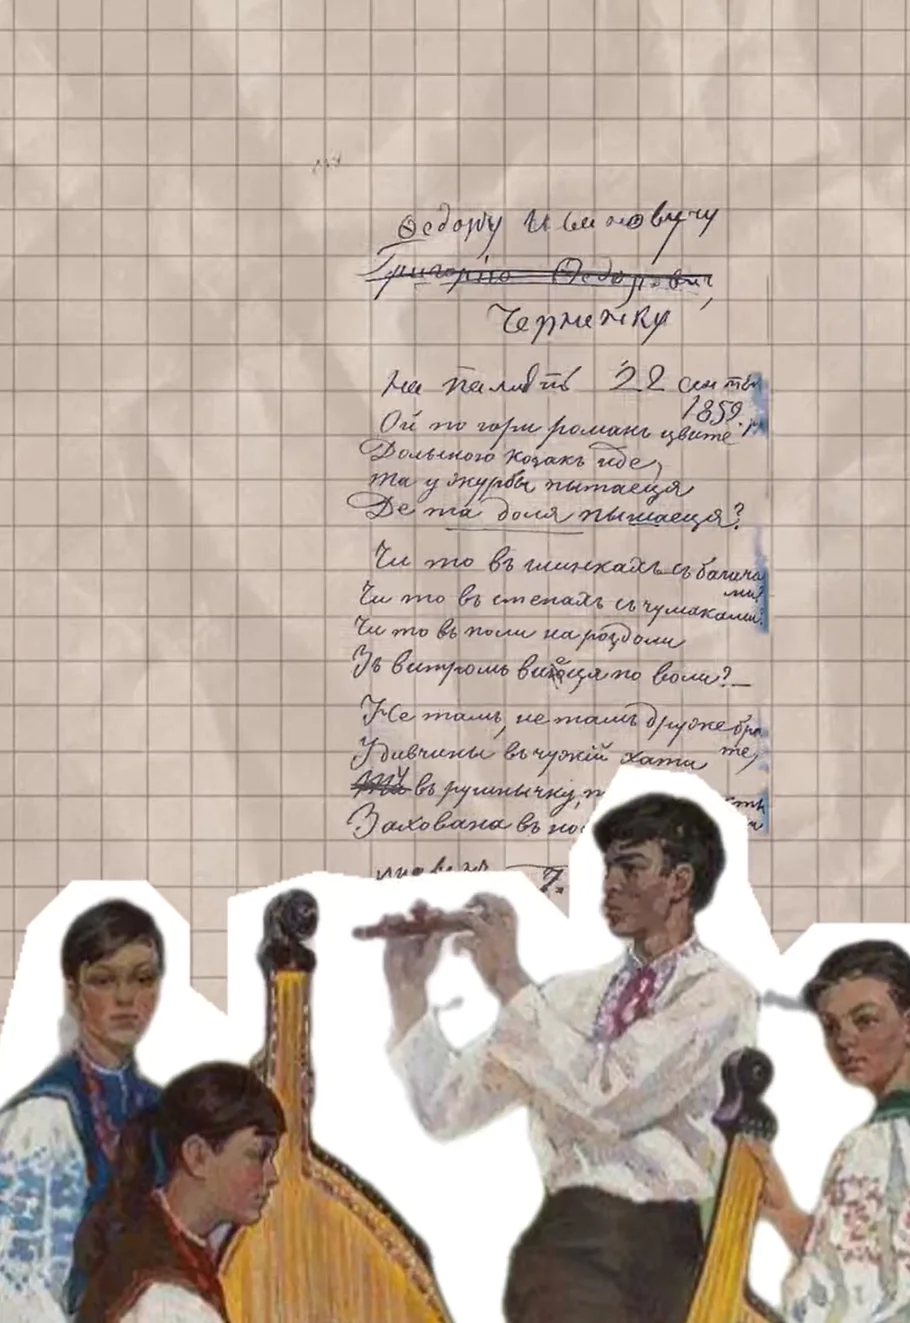 Ѳедору Ивановычу
Григорію Ѳедоровыч
Черненку
На памъять 22 сентяб
1859.
Ой по гори романъ цвите
Долыною козакъ иде,
Та у журбы пытаеця
Де та доля пышаеця?
Чи то въ шинкахъ съ багача
ми?
Чи то въ степахъ съ чумаками?
Чи то въ поли на роздоли
Зъ витромъ віеця по воли?—
Не тамъ, не тамъ друже бра
те,
У дивчины въ чужій хати
въ рушнычку,
Захована въ но